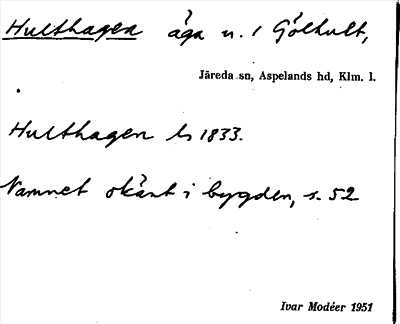 Hulthagen äga u. / Gölhult,
Järeda sn, Aspelands hd, Klm. l.
Hulthagen ls 1833.
Namnet okänt i bygden, s. 52
Ivar Modéer 1951